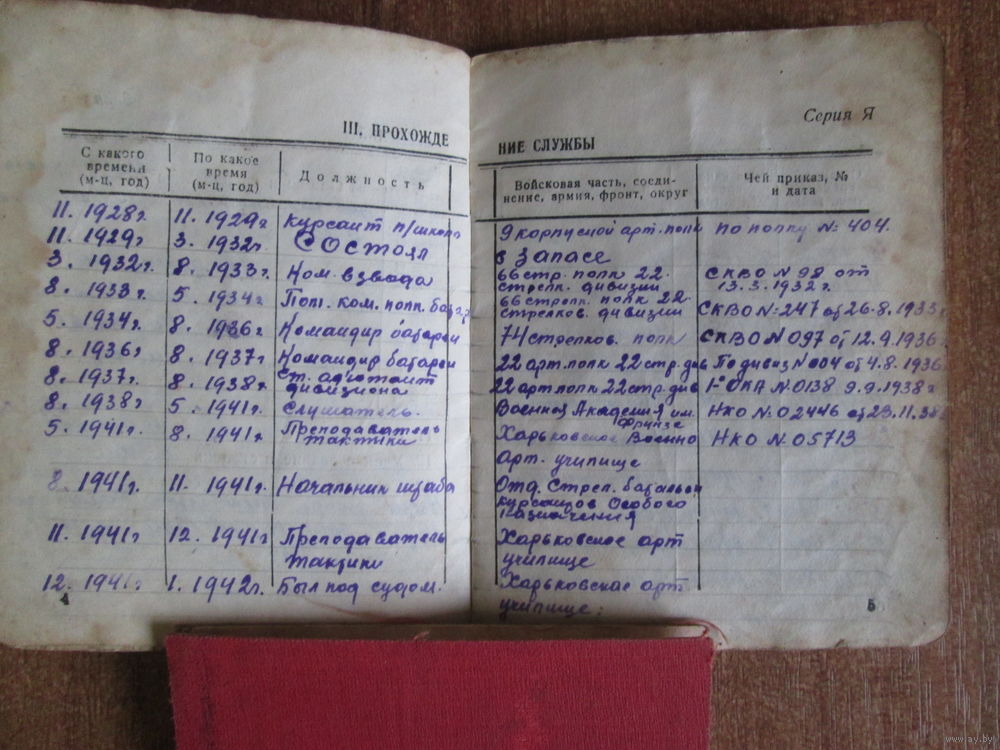 Серия Я
III. ПРОХОЖДЕ НИЕ СЛУЖБЫ
С какого времени (м-ц, год) По какое время (м-ц, год) Должность Войсковая часть, соеди-нение, армия, фронт, округ Чей приказ, № и дата
11. 1928г. 11. 1929г курсант п/школы 9 корпусной арт. полк по полку № 404.
11. 1929г 3. 1932г. Состоял в запасе
3. 1932г. 8. 1933г. Ком. взвода 66 стр. полк 22. стрелк. дивизии СКВО № 98 от 13.3.1932г.
8. 1933г. 5. 1934г. Пом. ком. полк. батар 66 стрелк. полк 22. стрелков. дивизии СКВО № 247 от 26.8.1933г
5. 1934г. 8. 1936г Командир батареи 74 стрелков. полк СКВО № 097 от 12.9.1936г
8. 1936г 8. 1937г Командир батареи 22 арт. полк 22 стр. див По дивиз № 004 от 4.8.1936
8. 1937г. 8. 1938г. Ст. адютант дивизиона 22 арт. полк 22 стр. див № 0138 9.9.1938г
8. 1938г 5. 1941г. Слушатель. Военная Академия им. Фрунзе НКО № 02446 от 23.11.38
5. 1941г. 8. 1941г. Преподаватель тактики Харьковское Военно Арт. училище НКО № 05713
8. 1941г. 11. 1941г. Начальник штаба Отд. Стрел. батальон курсантов Особого назначения
11. 1941г 12. 1941г Преподаватель тактики Харьковское арт училище
12. 1941г 1. 1942г. Был под судом. Харьковское арт. училище:
4
5
www.ay.by